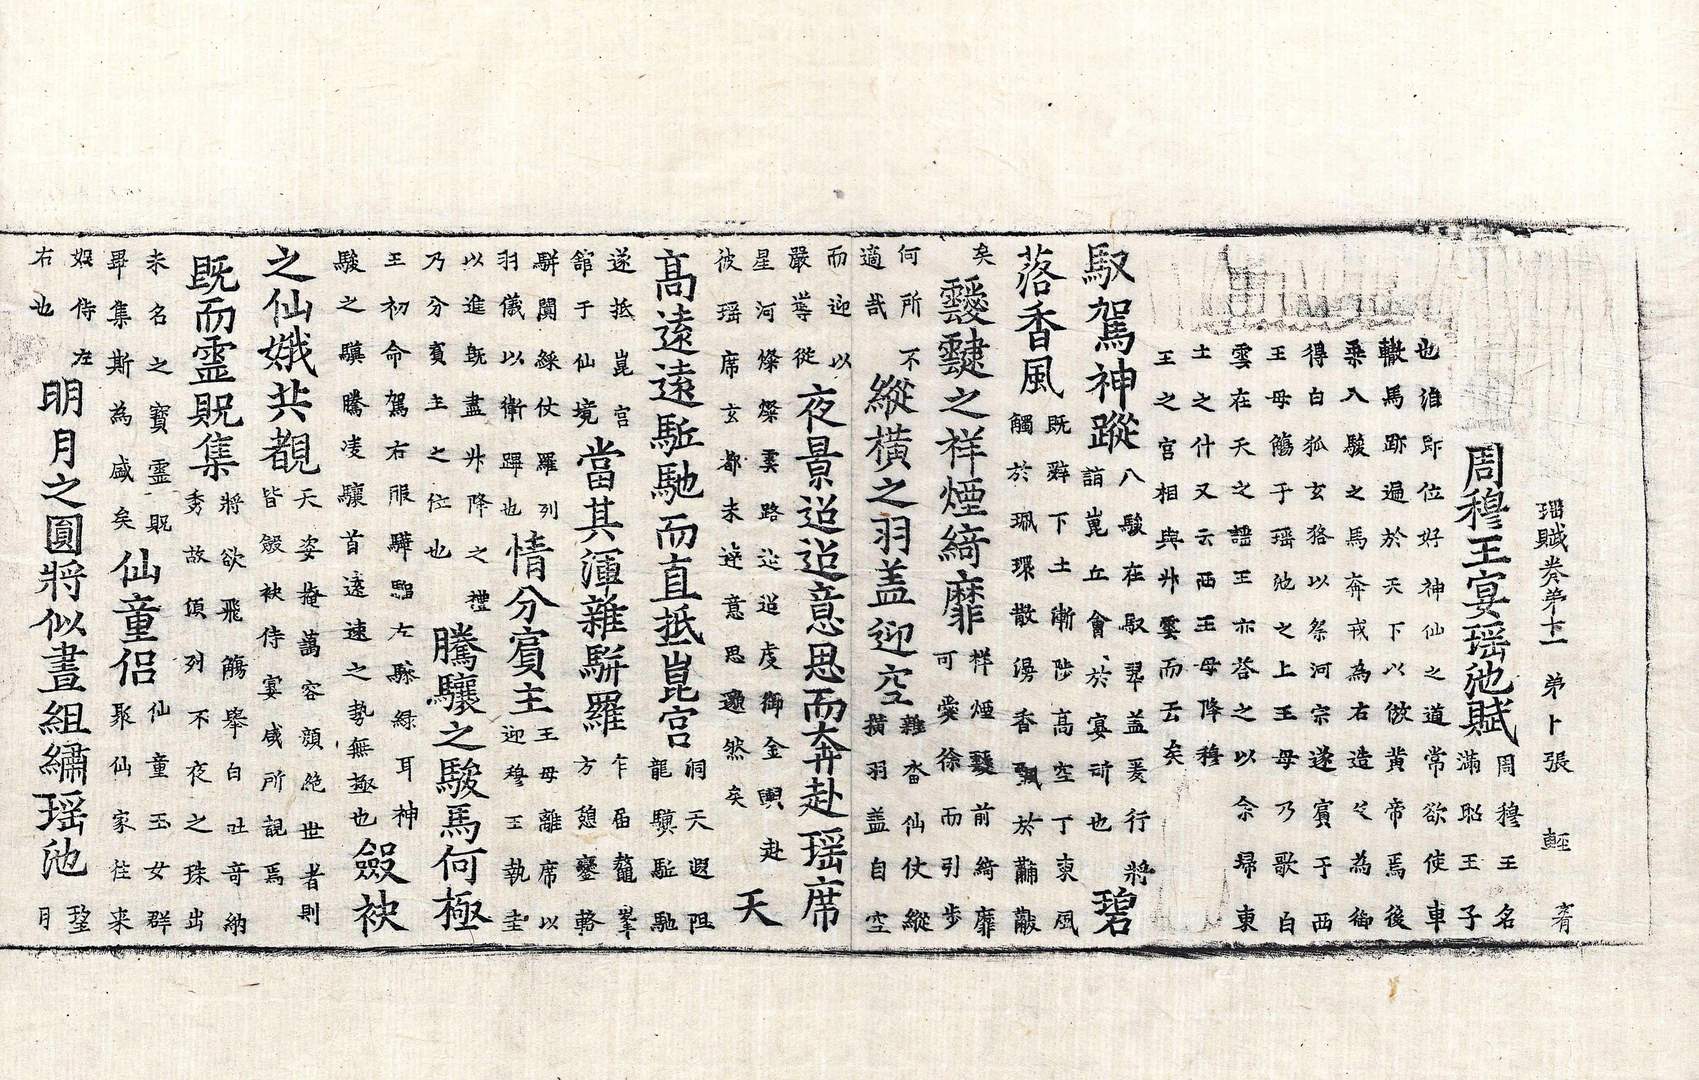 賦卷第 第 張 輕
周穆王宴瑶池賦
周穆王名
滿昭王子
也洎即位好神仙之道常欲使車
轍馬跡遍於天下以倣黃帝焉後
乘八駿之馬奔戎為右造父為御
得白狐玄狢以祭河宗遂賓于西
王母觴于瑶池之上王母乃歌白
雲在天之謡王亦荅之以余歸東
土之什又云西王母降穆
王之宮相與升雲而云矣
馭駕神蹤
八駿在馭翠盖爰行將
詣崑丘會於宴所也
碧
落香風
既辭下土漸陟高空丁東風
觸於珮環散漫香飄於黼黻
矣
靉靆之祥煙綺靡
祥煙靉前綺靡
可愛徐而引步
何所不
適哉
縱橫之羽盖迎空
雜沓仙仗縱
橫羽盖自空
而迎以
嚴䓁從
夜景迢迢意思而奔赴瑶席
星河燦爛雲路迢迢虔御金輿赴
彼瑶席玄都未遠意思邈然矣
天
高遠遠駈馳而直抵崑宫
洞天遐阻
龍驥駈馳
遂抵崑宫
舘于仙境
當其渾雜駢羅
乍届鼇峯
方憩鑾輅
駢闐綵仗羅列
羽儀以衛蹕也
情分賓主
王母離席以
迎穆王執圭
以進既盡升降之禮
乃分賓主之位也
騰驤之駿馬何極
王初命駕右服驊騮左驂綠耳神
駿之驥騰凌驤首遠速之勢無極也
斂袂
之仙娥共覩
天姿掩藹容顔絶世者則
皆斂袂侍宴咸所覩焉
既而靈貺集
將欲飛觴舉白吐竒納
秀故須列不夜之珠出
未名之寶靈貺
畢集斯為盛矣
仙童侣
仙童玉女群
聚仙家往來
娯侍左
右也
明月之圓將似畫組繡瑶池
望
月